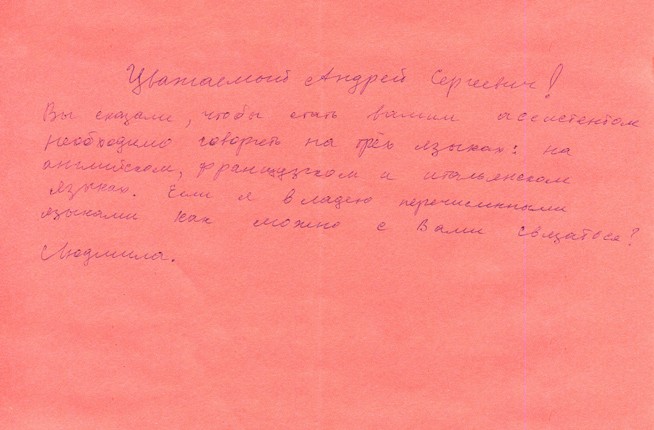 Уважаемый Андрей Сергеевич!
Вы сказали, чтобы стать вашим ассистентом
необходимо говорить на трёх языках: на
английском, французском и итальянском
языках. Если я владею перечисленными
языками как можно с Вами связаться?
Людмила.